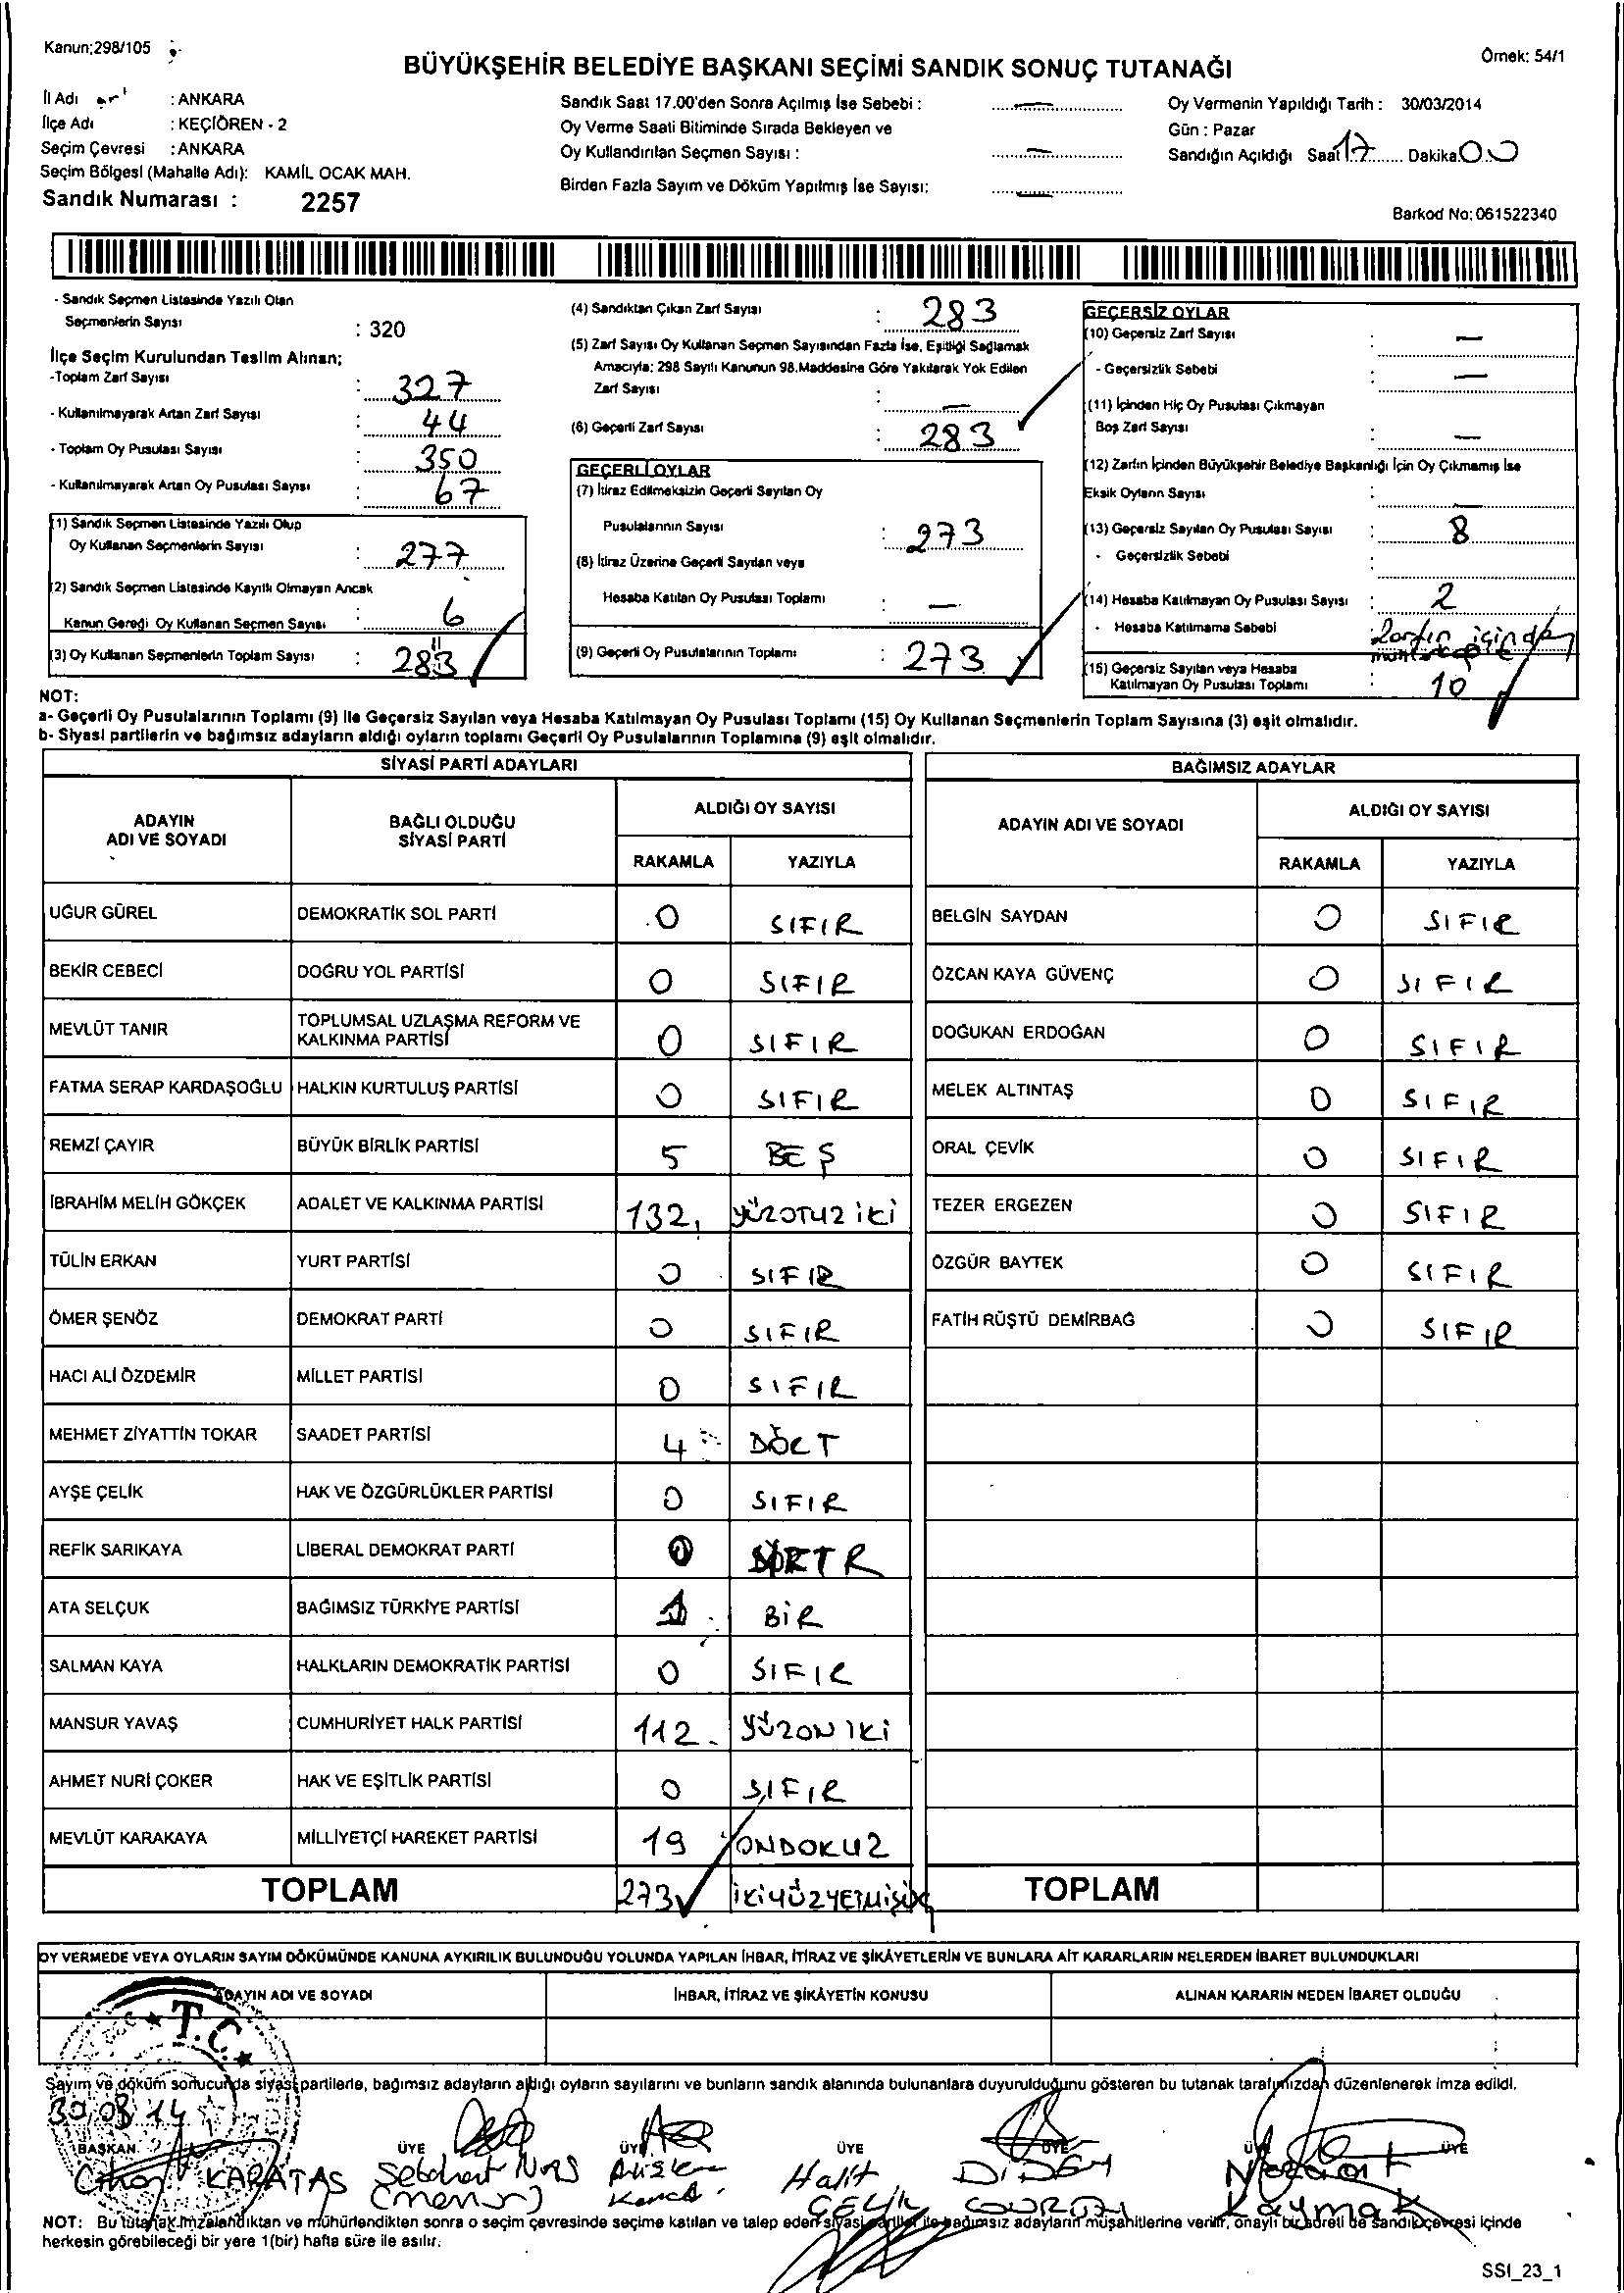 Kanun;298/105
Örnek: 54/1
BÜYÜKŞEHİR BELEDİYE BAŞKANI SEÇİMİ SANDIK SONUÇ TUTANAĞI
İl Adı : ANKARA
İlçe Adı : KEÇİÖREN - 2
Seçim Çevresi : ANKARA
Seçim Bölgesi (Mahalle Adı): KAMİL OCAK MAH.
Sandık Numarası : 2257
Sandık Saat 17.00'den Sonra Açılmış İse Sebebi : —
Oy Verme Saati Bitiminde Sırada Bekleyen ve
Oy Kullandırılan Seçmen Sayısı : —
Birden Fazla Sayım ve Döküm Yapılmış İse Sayısı: —
Oy Vermenin Yapıldığı Tarih : 30/03/2014
Gün : Pazar
Sandığın Açıldığı Saat 17 Dakika 00
Barkod No: 061522340
- Sandık Seçmen Listesinde Yazılı Olan
Seçmenlerin Sayısı : 320
İlçe Seçim Kurulundan Teslim Alınan;
-Toplam Zarf Sayısı : 327
- Kullanılmayarak Artan Zarf Sayısı : 44
- Toplam Oy Pusulası Sayısı : 350
- Kullanılmayarak Artan Oy Pusulası Sayısı : 67
(1) Sandık Seçmen Listesinde Yazılı Olup
Oy Kullanan Seçmenlerin Sayısı : 277
(2) Sandık Seçmen Listesinde Kayıtlı Olmayan Ancak
Kanun Gereği Oy Kullanan Seçmen Sayısı : 6
(3) Oy Kullanan Seçmenlerin Toplam Sayısı : 283
(4) Sandıktan Çıkan Zarf Sayısı : 283
(5) Zarf Sayısı Oy Kullanan Seçmen Sayısından Fazla İse, Eşitliği Sağlamak
Amacıyla; 298 Sayılı Kanunun 98.Maddesine Göre Yakılarak Yok Edilen
Zarf Sayısı : —
(6) Geçerli Zarf Sayısı : 283
GEÇERLİ OYLAR
(7) İtiraz Edilmeksizin Geçerli Sayılan Oy
Pusulalarının Sayısı : 273
(8) İtiraz Üzerine Geçerli Sayılan veya
Hesaba Katılan Oy Pusulası Toplamı : —
(9) Geçerli Oy Pusulalarının Toplamı : 273
GEÇERSİZ OYLAR
(10) Geçersiz Zarf Sayısı : —
- Geçersizlik Sebebi : —
(11) İçinden Hiç Oy Pusulası Çıkmayan
Boş Zarf Sayısı : —
(12) Zarfın İçinden Büyükşehir Belediye Başkanlığı İçin Oy Çıkmamış İse
Eksik Oyların Sayısı : —
(13) Geçersiz Sayılan Oy Pusulası Sayısı : 8
- Geçersizlik Sebebi :
(14) Hesaba Katılmayan Oy Pusulası Sayısı : 2
- Hesaba Katılmama Sebebi : Zarfın içinden
(15) Geçersiz Sayılan veya Hesaba
Katılmayan Oy Pusulası Toplamı : 10
NOT:
a- Geçerli Oy Pusulalarının Toplamı (9) ile Geçersiz Sayılan veya Hesaba Katılmayan Oy Pusulası Toplamı (15) Oy Kullanan Seçmenlerin Toplam Sayısına (3) eşit olmalıdır.
b- Siyasi partilerin ve bağımsız adayların aldığı oyların toplamı Geçerli Oy Pusulalarının Toplamına (9) eşit olmalıdır.
SİYASİ PARTİ ADAYLARI
ADAYIN ADI VE SOYADI BAĞLI OLDUĞU SİYASİ PARTİ ALDIĞI OY SAYISI
RAKAMLA YAZIYLA
UĞUR GÜREL DEMOKRATİK SOL PARTİ 0 SIFIR
BEKİR CEBECİ DOĞRU YOL PARTİSİ 0 SIFIR
MEVLÜT TANIR TOPLUMSAL UZLAŞMA REFORM VE KALKINMA PARTİSİ 0 SIFIR
FATMA SERAP KARDAŞOĞLU HALKIN KURTULUŞ PARTİSİ 0 SIFIR
REMZİ ÇAYIR BÜYÜK BİRLİK PARTİSİ 5 BEŞ
İBRAHİM MELİH GÖKÇEK ADALET VE KALKINMA PARTİSİ 132 YÜZOTUZ iKi
TÜLİN ERKAN YURT PARTİSİ 0 SIFIR
ÖMER ŞENÖZ DEMOKRAT PARTİ 0 SIFIR
HACI ALİ ÖZDEMİR MİLLET PARTİSİ 0 SIFIR
MEHMET ZİYATTİN TOKAR SAADET PARTİSİ 4 DÖRT
AYŞE ÇELİK HAK VE ÖZGÜRLÜKLER PARTİSİ 0 SIFIR
REFİK SARIKAYA LİBERAL DEMOKRAT PARTİ 0
ATA SELÇUK BAĞIMSIZ TÜRKİYE PARTİSİ 1 BiR
SALMAN KAYA HALKLARIN DEMOKRATİK PARTİSİ 0 SIFIR
MANSUR YAVAŞ CUMHURİYET HALK PARTİSİ 112 YÜZON iKi
AHMET NURİ ÇOKER HAK VE EŞİTLİK PARTİSİ 0 SIFIR
MEVLÜT KARAKAYA MİLLİYETÇİ HAREKET PARTİSİ 19 ONDOKUZ
TOPLAM 273 iKiYÜZYETMİŞÜÇ
BAĞIMSIZ ADAYLAR
ADAYIN ADI VE SOYADI ALDIĞI OY SAYISI
RAKAMLA YAZIYLA
BELGİN SAYDAN 0 SIFIR
ÖZCAN KAYA GÜVENÇ 0 SIFIR
DOĞUKAN ERDOĞAN 0 SIFIR
MELEK ALTINTAŞ 0 SIFIR
ORAL ÇEVİK 0 SIFIR
TEZER ERGEZEN 0 SIFIR
ÖZGÜR BAYTEK 0 SIFIR
FATİH RÜŞTÜ DEMİRBAĞ 0 SIFIR
TOPLAM
OY VERMEDE VEYA OYLARIN SAYIM DÖKÜMÜNDE KANUNA AYKIRILIK BULUNDUĞU YOLUNDA YAPILAN İHBAR, İTİRAZ VE ŞİKÂYETLERİN VE BUNLARA AİT KARARLARIN NELERDEN İBARET BULUNDUKLARI
ADAYIN ADI VE SOYADI İHBAR, İTİRAZ VE ŞİKÂYETİN KONUSU ALINAN KARARIN NEDEN İBARET OLDUĞU
T.C.
Sayım ve döküm sonucunda siyasi partilerle, bağımsız adayların aldığı oyların sayılarını ve bunların sandık alanında bulunanlara duyurulduğunu gösteren bu tutanak tarafımızdan düzenlenerek imza edildi.
30/03 14
BAŞKAN ÜYE ÜYE ÜYE ÜYE ÜYE ÜYE
KARATAŞ Halit Nezaket
ÇELİK Kaymak
NOT: Bu tutanak imzalandıktan ve mühürlendikten sonra o seçim çevresinde seçime katılan ve talep eden siyasi partiler ile bağımsız adayların müşahitlerine verilir, onaylı bir sureti de sandık çevresi içinde
herkesin görebileceği bir yere 1(bir) hafta süre ile asılır.
SSI_23_1